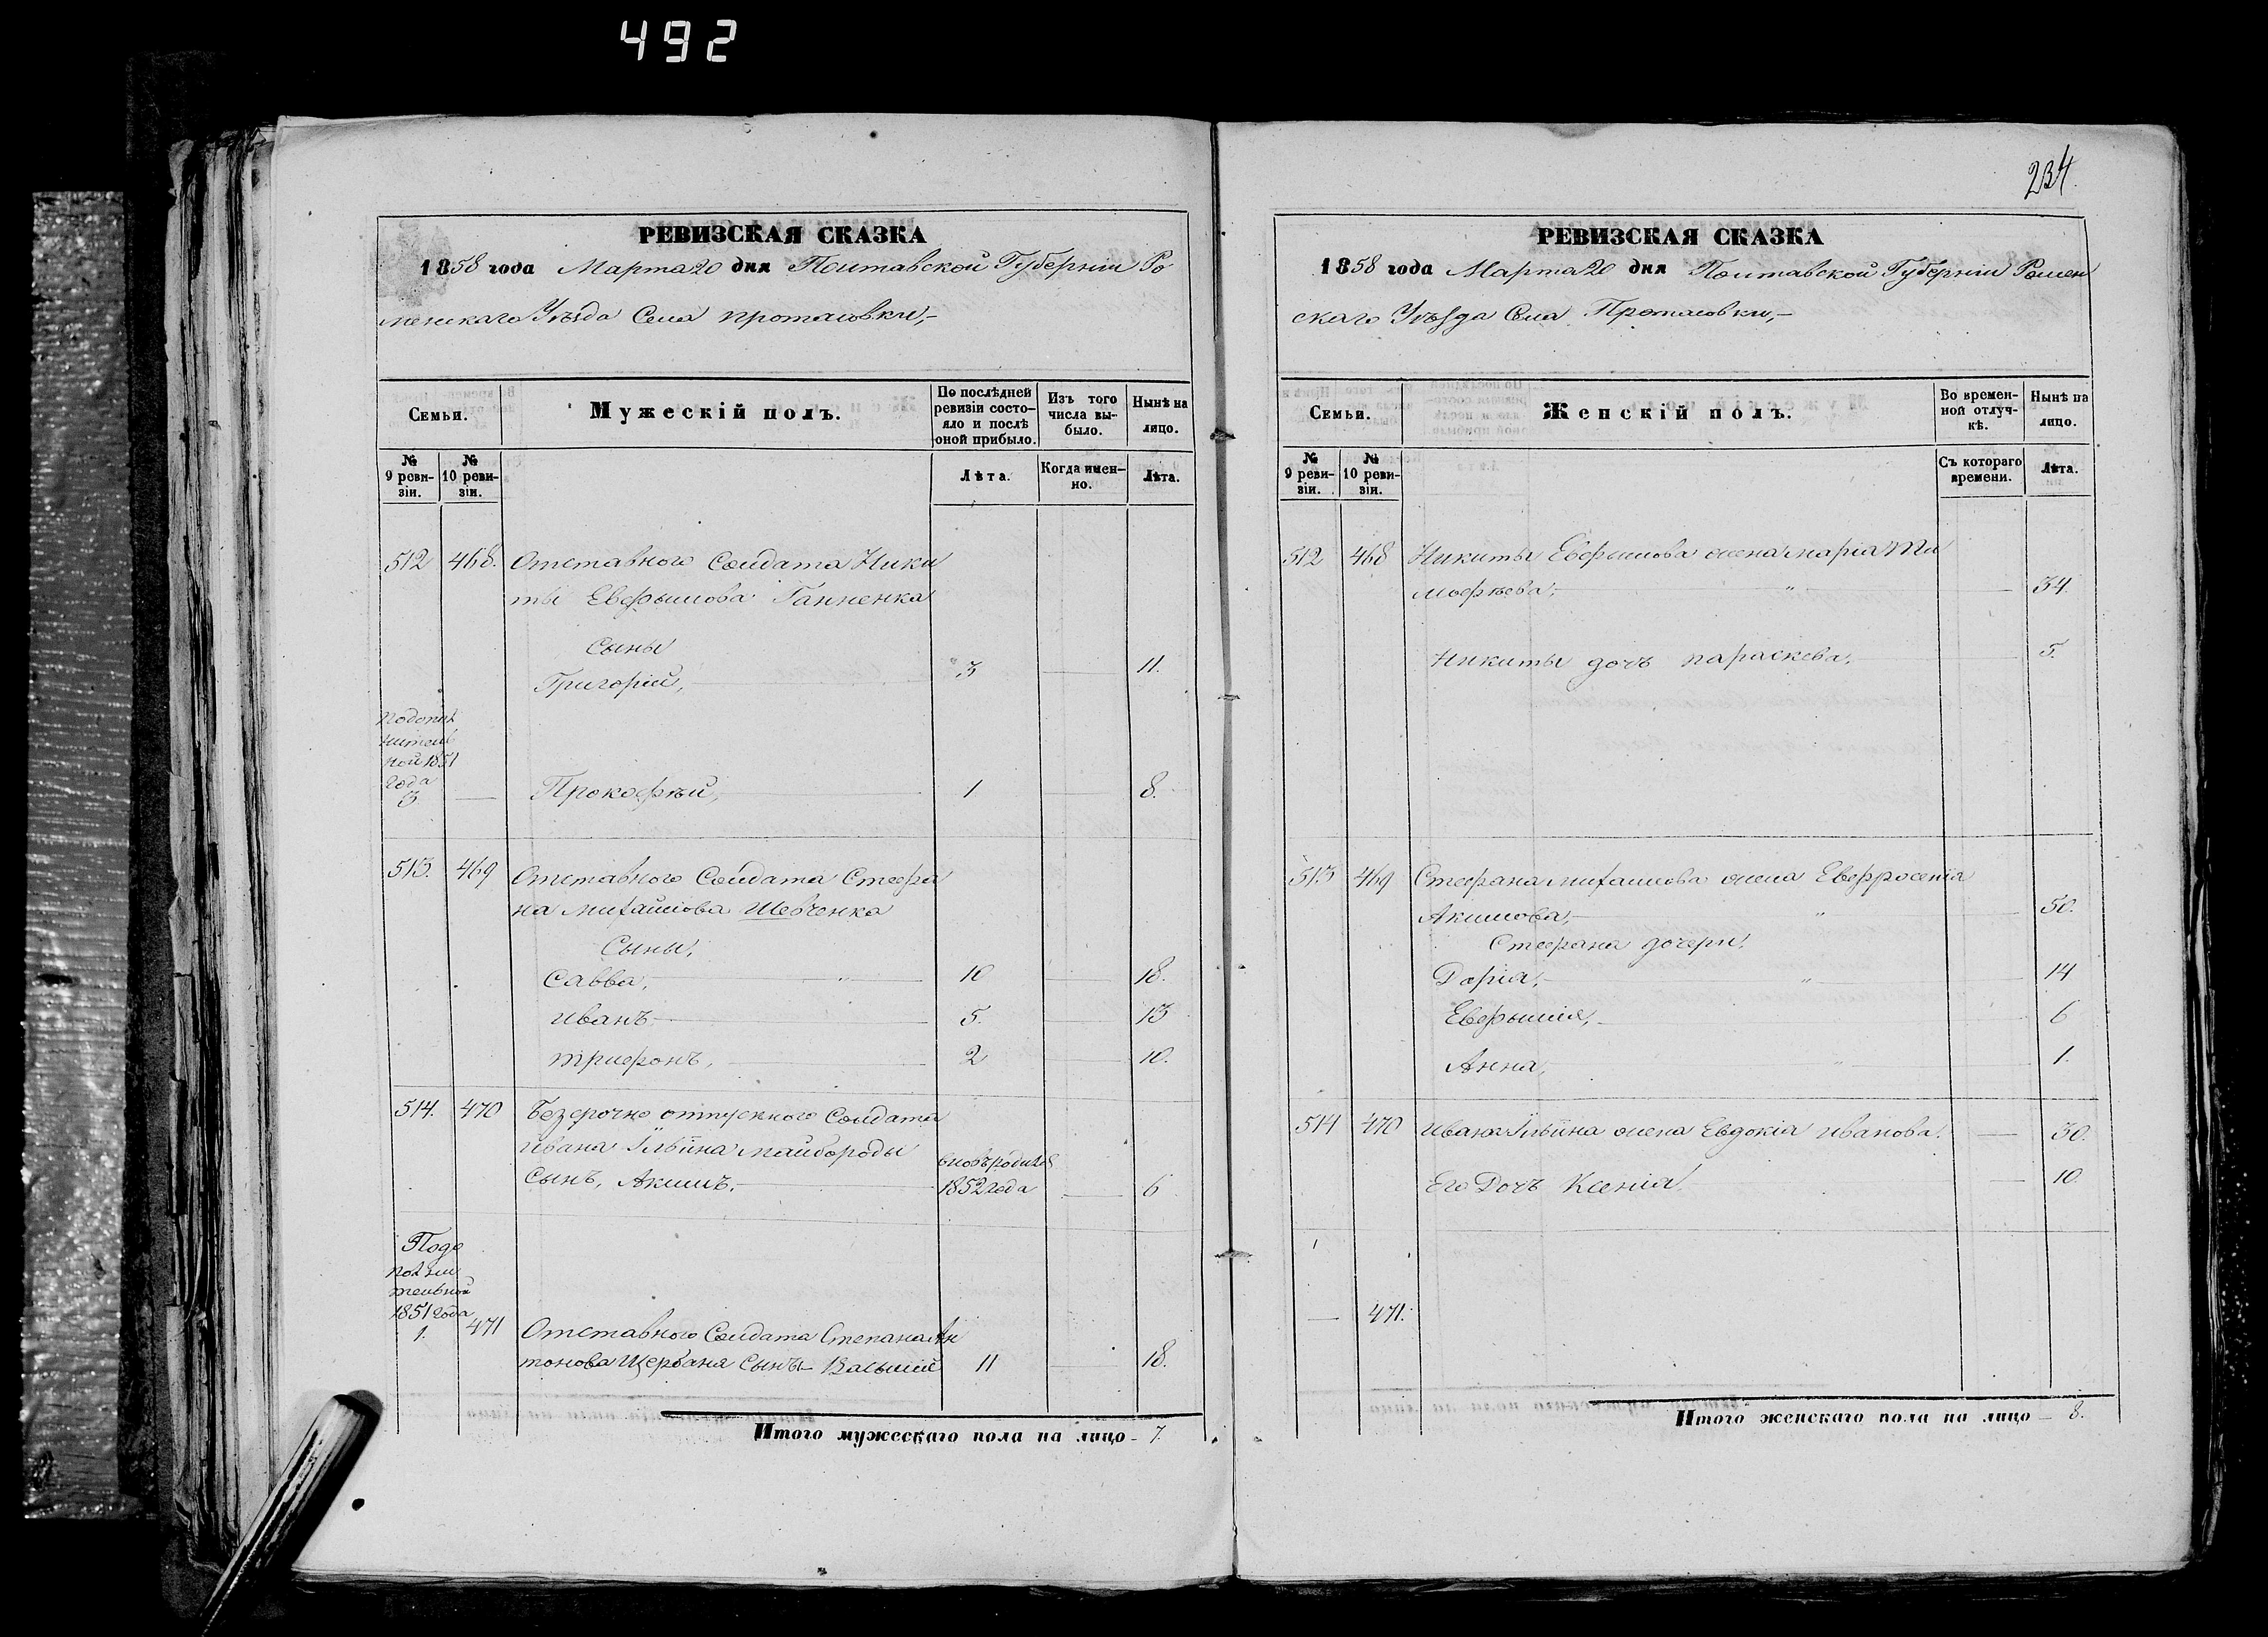 492
234.
РЕВИЗСКАЯ СКАЗКА
1858 года Марта 20 дня Полтавской Губерніи Ро
менскаго Уѣзда Села Протасовки,-
Семьи.
Мужескій полъ.
По послѣдней ревизіи состояло и послѣ оной прибыло.
Изъ того числа выбыло.
Нынѣ на лицо.
№ 9 ревизіи.
№ 10 ревизіи.
Лѣта.
Когда именно.
Лѣта.
512 468. Отставного Солдата Ники
ты Евфимова Ганненка
Сыны
Григорій, 3 11.
Подопол
нитель
ной 1851
года
3. Прокофій, 1 8.
513. 469 Отставного Солдата Стефа
на Михайлова Шевченка
Сыны,
Савва, 10 18.
Иванъ 5. 13
Трифонъ, 2 10.
514. 470 Безсрочно отпускного Солдата
Ивана Ильина Майбороды
Сынъ, Акимъ, вновь родился 1852 года 6
Подо
полни
тельной
1851 года
1. 471 Отставного Солдата Степана Ан
тонова Щербаня Сынъ- Василій 11 18.
Итого мужескаго пола на лицо - 7.
РЕВИЗСКАЯ СКАЗКА
1858 года Марта 20 дня Полтавской Губерніи Ромен
скаго Уѣзда Села Протасовки,-
Семьи.
Женскій полъ.
Во временной отлучкѣ.
Нынѣ на лицо.
№ 9 ревизіи.
№ 10 ревизіи.
Съ котораго времени.
Лѣта.
512 468 Никиты Евфимова жена Марія Ти
мофѣева, 34.
Никиты дочь Параскева. 5.
513 469 Стефана Михайлова жена Евфросенія
Акимова, 50.
Стефана дочери,
Дарія, 14
Евфимія, 6
Анна, 1.
514 470 Ивана Ильина жена Евдокія Иванова. 30.
Его Дочь Ксенія 10.
471.
Итого женскаго пола на лицо - 8.